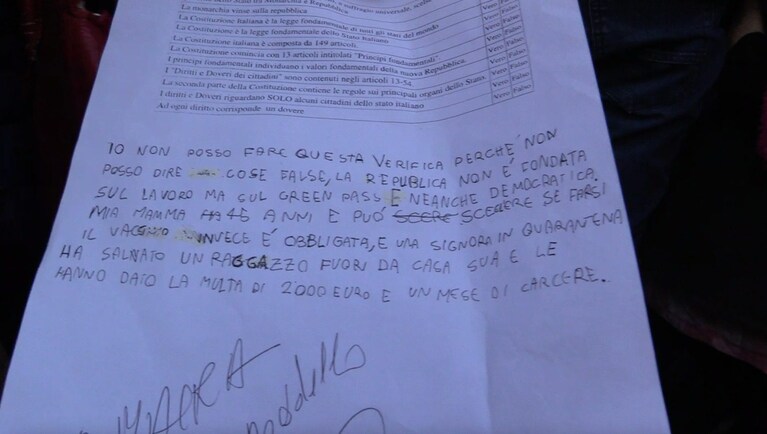 La monarchia vinse sulla repubblica Vero Falso
La Costituzione Italiana è la legge fondamentale di tutti gli stati del mondo Vero Falso
La Costituzione è la legge fondamentale dello Stato italiano Vero Falso
La Costituzione italiana è composta da 149 articoli. Vero Falso
La Costituzione comincia con 13 articoli intitolati "Principi fondamentali" Vero Falso
I principi fondamentali individuano i valori fondamentali della nuova Repubblica. Vero Falso
I "Diritti e Doveri dei cittadini" sono contenuti negli articoli 13-54 Vero Falso
La seconda parte della Costituzione contiene le regole sui principali organi dello Stato. Vero Falso
I diritti e Doveri riguardano SOLO alcuni cittadini dello stato italiano Vero Falso
Ad ogni diritto corrisponde un dovere Vero Falso
IO NON POSSO FARE QUESTA VERIFICA PERCHÈ NON
POSSO DIRE COSE FALSE, LA REPUBLICA NON È FONDATA
SUL LAVORO MA SUL GREEN PASS E NEANCHE DEMOCRATICA.
MIA MAMMA HA 45 ANNI E PUÓ SCERE SCEGERE SE FARSI
IL INVECE É OBBLIGATA, E UNA SIGNORA IN QUARANTENA
HA SALVATO UN RAGGAZZO FUORI DA CASA SUA E LE
HANNO DATO LA MULTA DI 2000 EURO E UN MESE DI CARCERE.